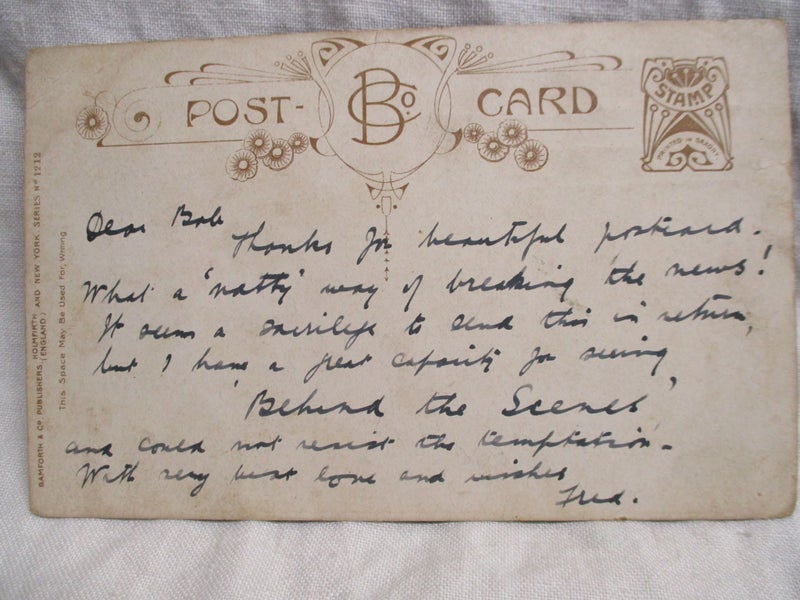 POST- BCo. CARD
STAMP
PRINTED IN SAXONY
BAMFORTH & Co. PUBLISHERS, HOLMFIRTH AND NEW YORK. SERIES No 1212
(ENGLAND)
This Space May Be Used For Writing
Dear Bob
Thanks for beautiful postcard.
What a "natty" way of breaking the news!
It seems a sacrilege to send this in return,
but I have a great capacity for seeing
"Behind the Scenes"
and could not resist the temptation.
With very best love and wishes
Fred.